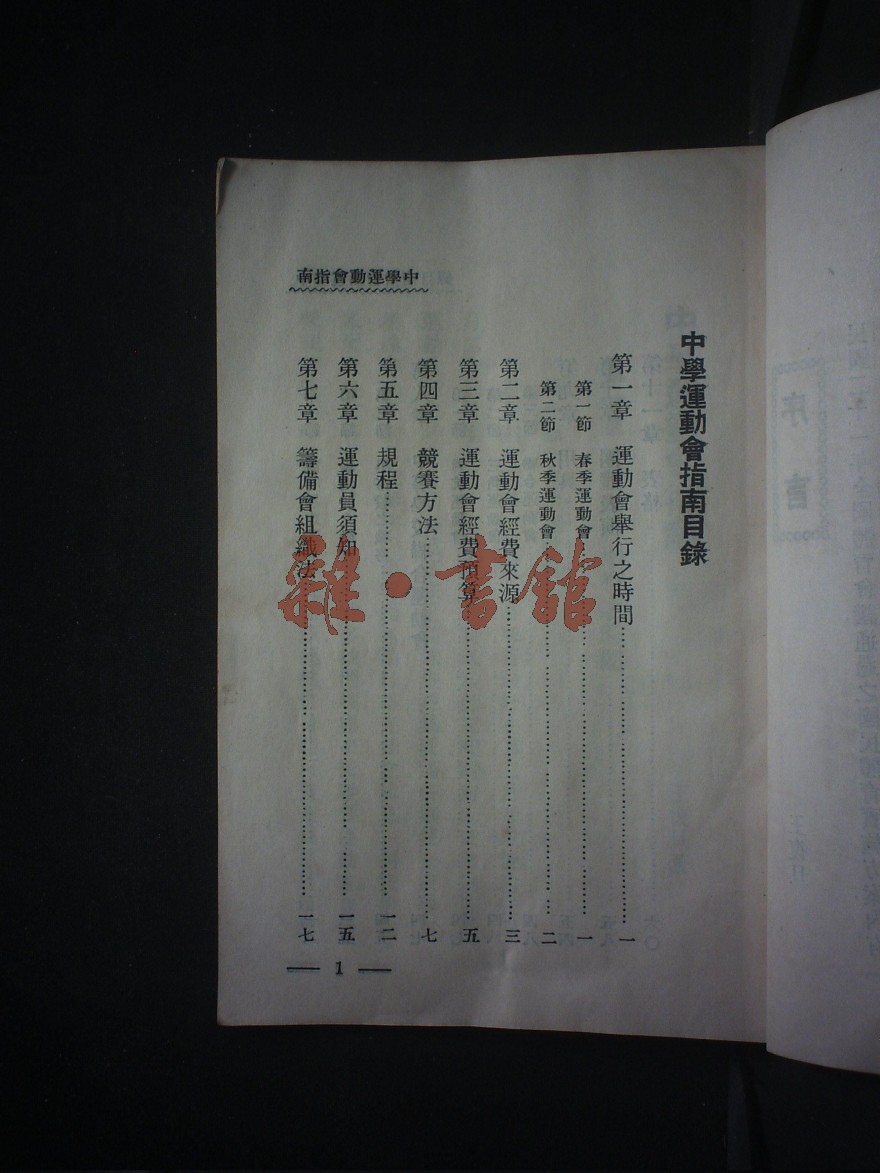 中學運動會指南
中學運動會指南目錄
第一章 運動會舉行之時間…………一
第一節 春季運動會…………一
第二節 秋季運動會…………二
第二章 運動會經費來源…………三
第三章 運動會經費預算…………五
第四章 競賽方法…………七
第五章 規程…………一二
第六章 運動員須知…………一五
第七章 籌備會組織法…………一七
— 1 —
雜·書館
序言